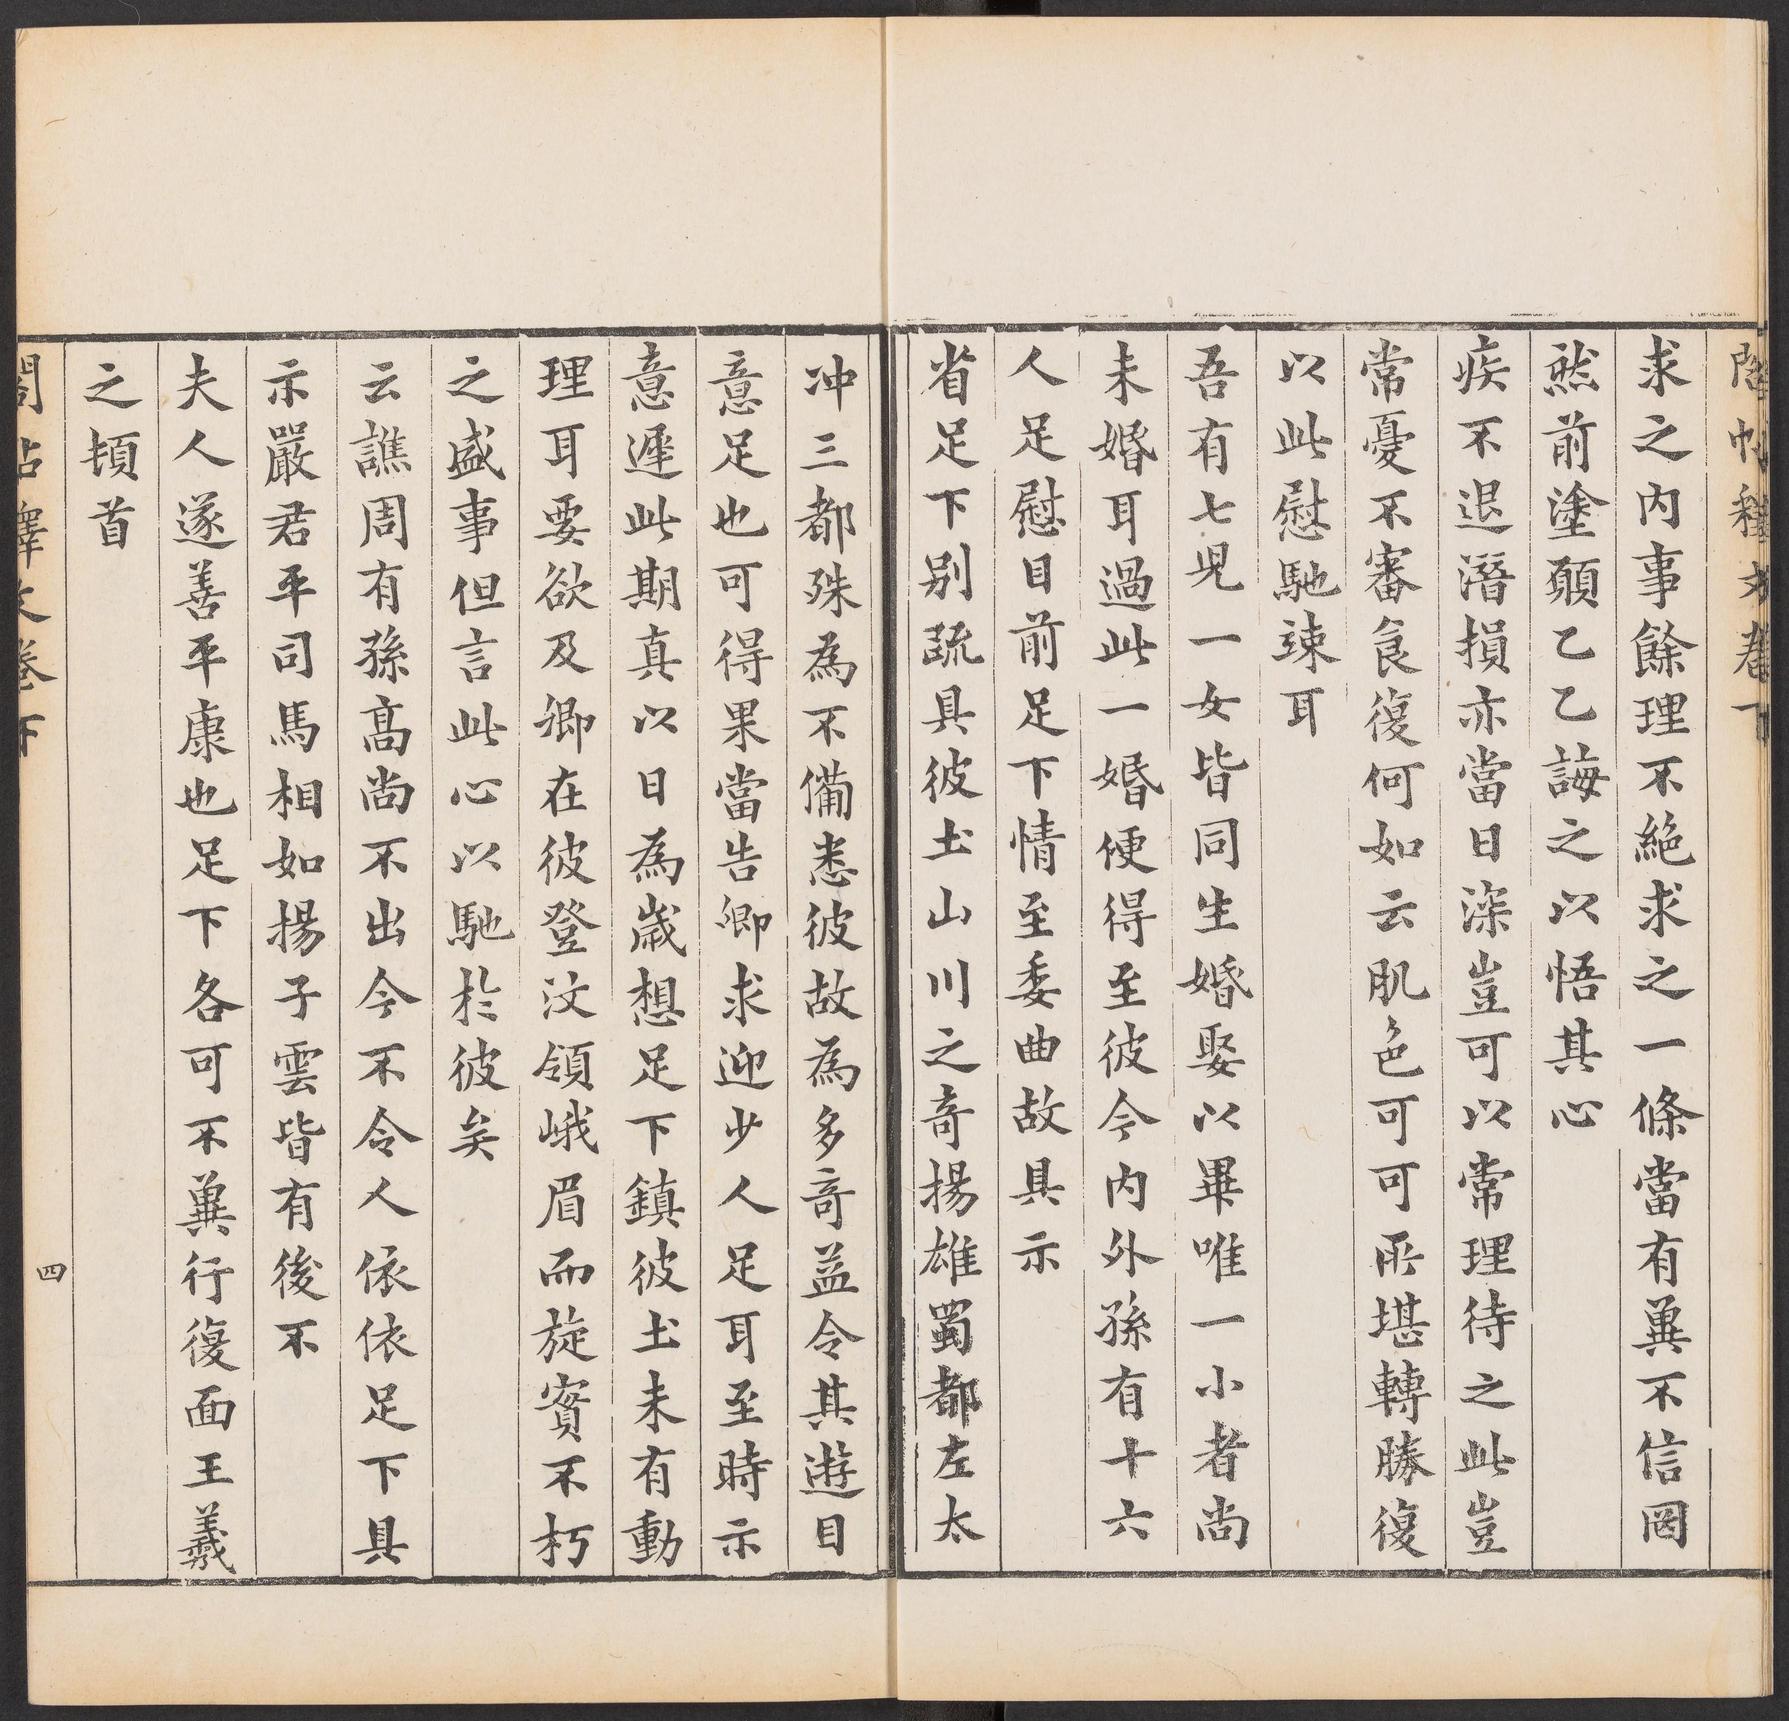 閣帖釋文卷下
求之内事餘理不絶求之一條當有冀不信罔
然前塗願乙乙誨之以悟其心
疾不退潛損亦當日深豈可以常理待之此豈
常憂不審食復何如云肌色可可所堪轉勝復
以此慰馳竦耳
吾有七兒一女皆同生婚娶以畢唯一小者尚
未婚耳過此一婚便得至彼今内外孫有十六
人足慰目前足下情至委曲故具示
省足下别疏具彼土山川之竒揚雄蜀都左太
冲三都殊為不備悉彼故為多竒益令其遊目
意足也可得果當告卿求迎少人足耳至時示
意遲此期真以日為歲想足下鎮彼土未有動
理耳要欲及卿在彼登汶領峨眉而旋實不朽
之盛事但言此心以馳於彼矣
云譙周有孫髙尚不出今不令人依依足下具
示嚴君平司馬相如揚子雲皆有後不
夫人遂善平康也足下各可不冀行復面王羲
之頓首
閣帖釋文卷下
四